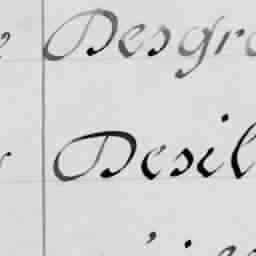 Desgr
Desil